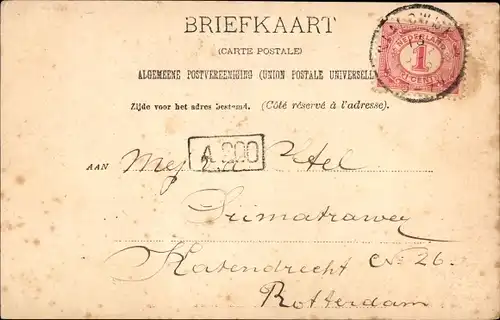 BRIEFKAART
(CARTE POSTALE)
ALGEMEENE POSTVEREENIGING (UNION POSTALE UNIVERSELLE
Zijde voor het adres bestemd. (Côté réservé à l'adresse).
NEDERLAND
1
CENT
A 300
AAN Mej
Sumatraweg
Katendrecht No 26.
Rotterdam